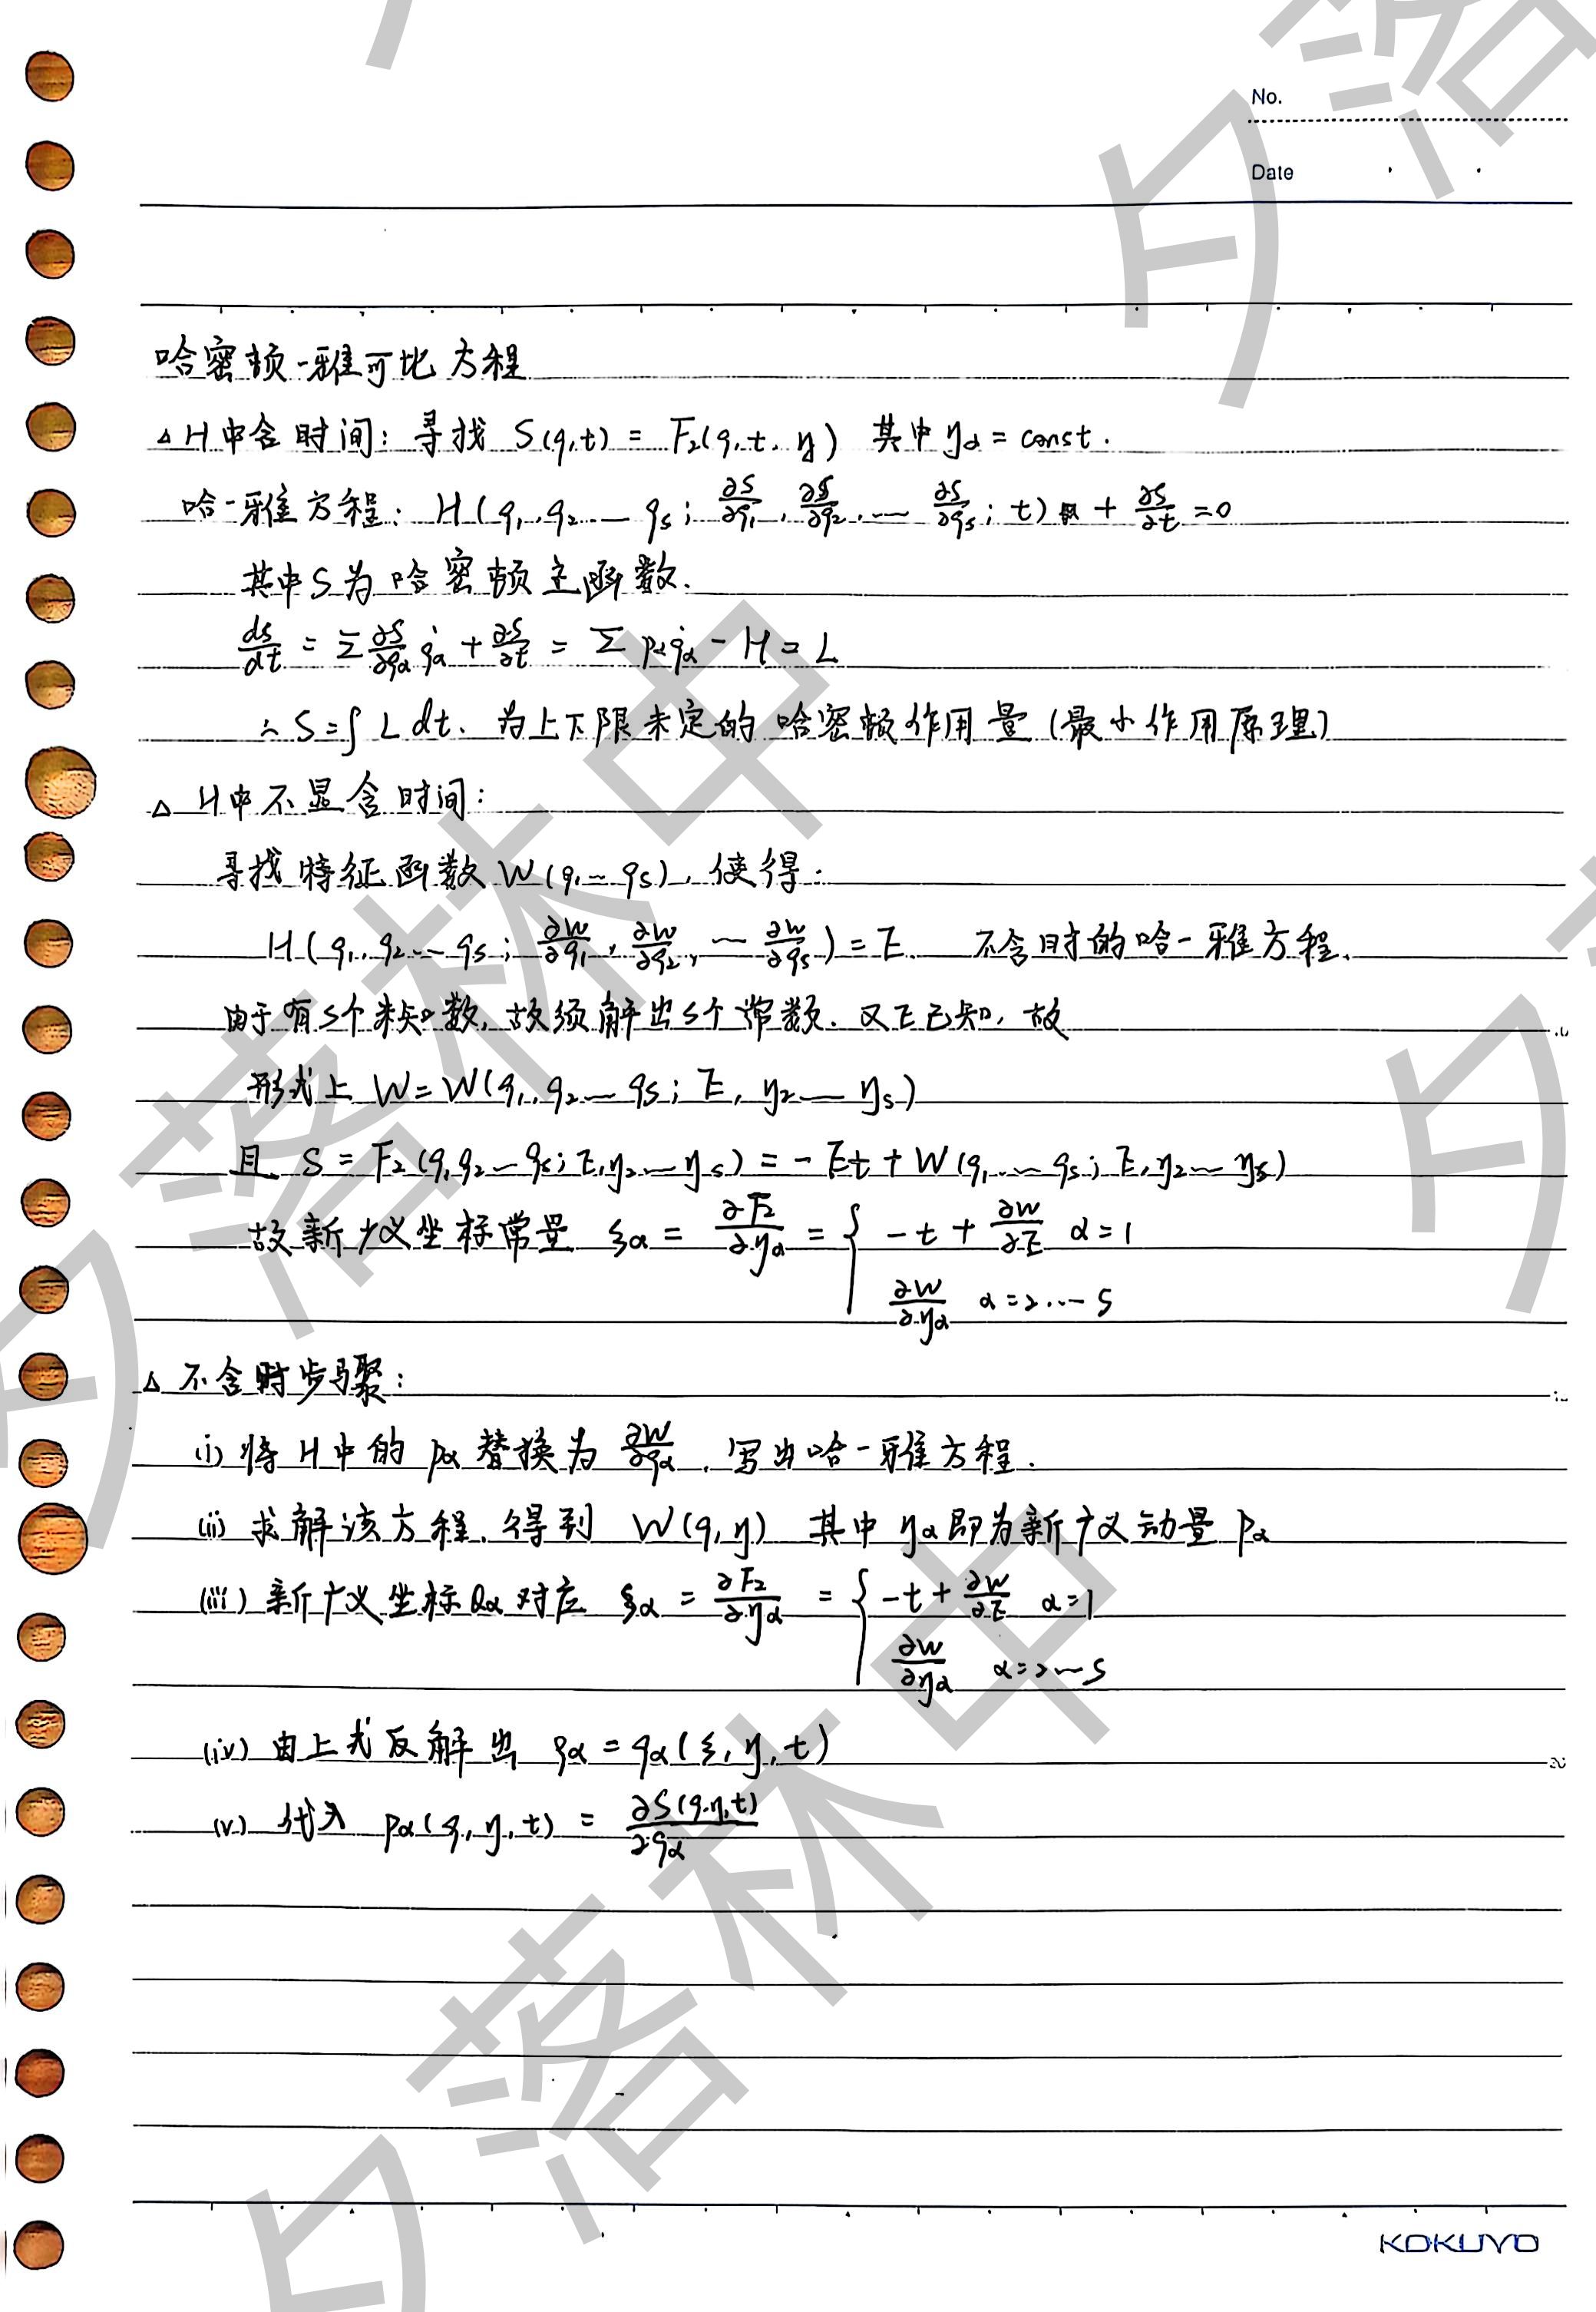 No.
Date
哈密顿-雅可比方程
△ H中含时间: 寻找 S(q,t) = F₂(q,t,η) 其中 ηα = const.
哈-雅方程: H(q₁,q₂…qs; ∂S/∂q₁, ∂S/∂q₂,… ∂S/∂qs; t) + ∂S/∂t = 0
其中S为哈密顿主函数.
dS/dt = Σ ∂S/∂qα q̇α + ∂S/∂t = Σ pα q̇α - H = L
∴ S = ∫ L dt. 为上下限未定的哈密顿作用量 (最小作用原理)
△ H中不显含时间:
寻找特征函数 W(q₁…qs), 使得:
H(q₁,q₂…qs; ∂W/∂q₁, ∂W/∂q₂, … ∂W/∂qs) = E. 不含时的哈-雅方程.
由于有s个未知数, 故须解出s个常数. 又E已知, 故
形式上 W = W(q₁,q₂…qs; E, η₂…ηs)
且 S = F₂(q₁q₂…qs; E,η₂…ηs) = -Et + W(q₁…qs; E,η₂…ηs)
故新广义坐标常量 ξα = ∂F₂/∂ηα = { -t + ∂W/∂E α=1
∂W/∂ηα α=2…s
△ 不含时步骤:
(i) 将H中的 pα 替换为 ∂W/∂qα, 写出哈-雅方程.
(ii) 求解该方程, 得到 W(q,η) 其中 ηα 即为新广义动量 Pα
(iii) 新广义坐标 Qα 对应 ξα = ∂F₂/∂ηα = { -t + ∂W/∂E α=1
∂W/∂ηα α=2…s
(iv) 由上式反解出 qα = qα(ξ,η,t)
(v) 代入 pα(q,η,t) = ∂S(q,η,t)/∂qα
KOKUYO
夕落林中
夕落林中
夕落
夕